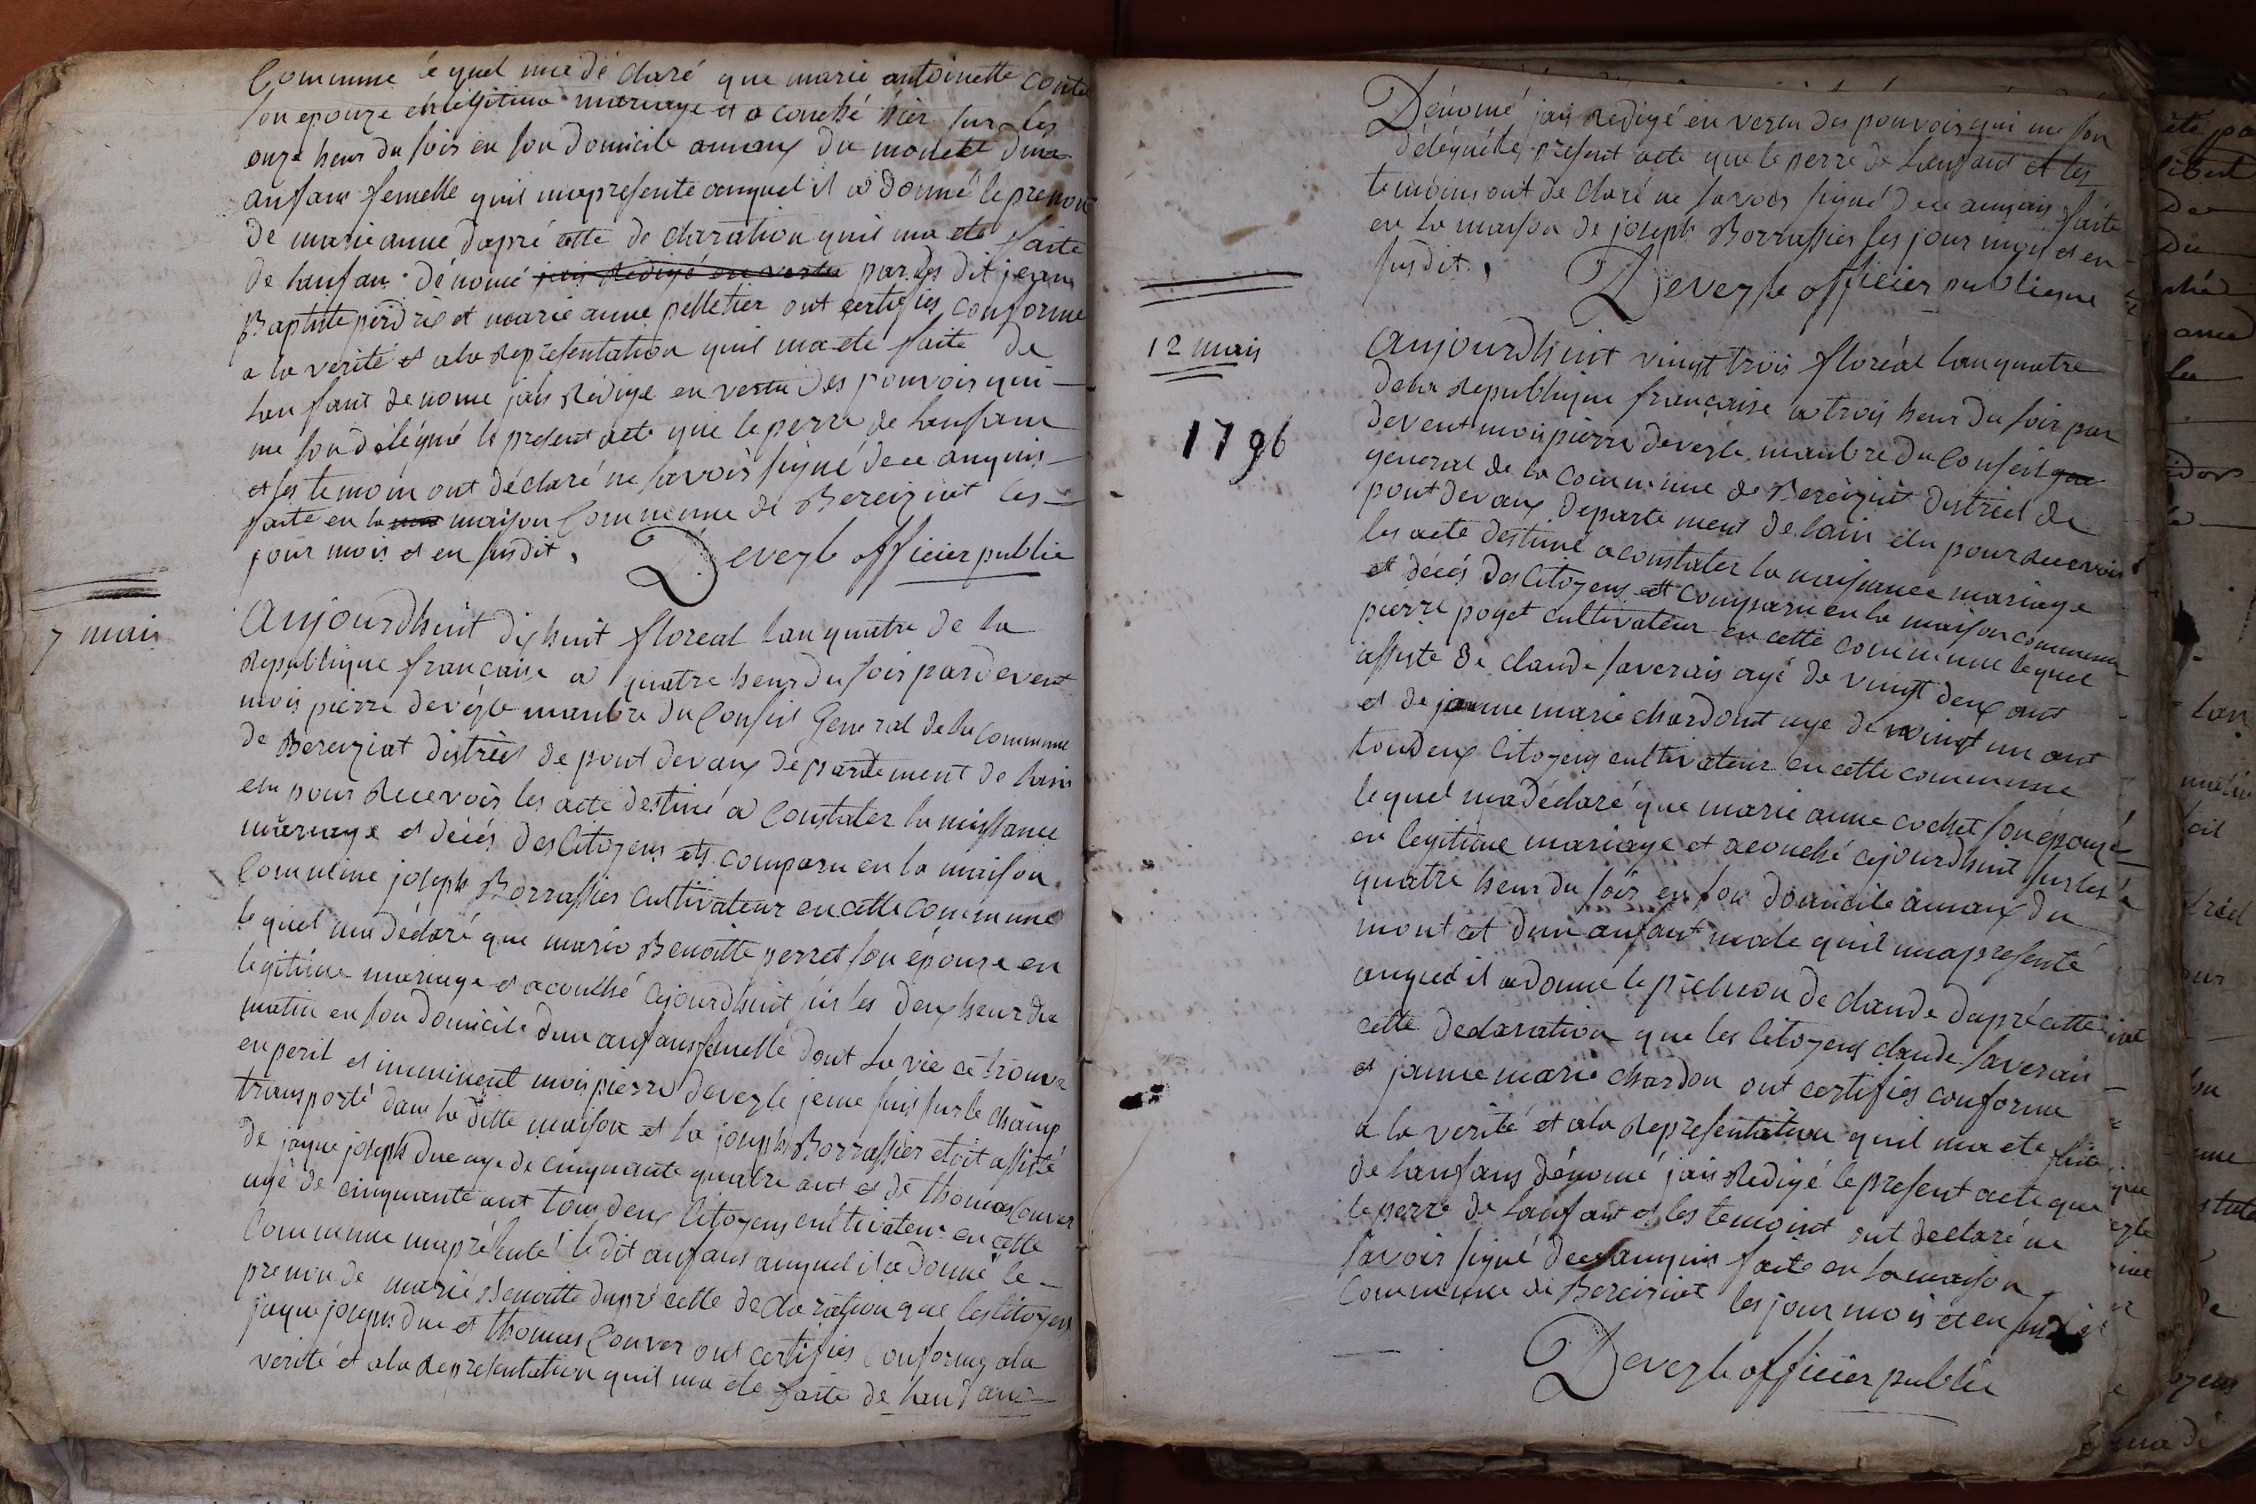 Commune le quel ma dé claré que marie antoinette
son epouze en légitime mariage et a couché hier sur les
onze heur du soir en son domicile du dun
anfant femelle quil ma presenté auquel il a donné le prenon
de marie anne dapré cette de claration quil ma ete faite
de lanfan dénomé jais redigé en vertu par les dit jean
Baptiste perdrix et marie anne pelletier ont certifies conforme
a la verité et ala representation quil ma ete faite de
lenfant denome jais rédigé en vertu des pouvoir qui
me son délégué le present acte que le perre de lenfant
et les temoin ont déclaré ne savoir signé de ce anquis
faite en la maison Commune de Bereiziat les
jour mois et en susdit,
Devezle officier public
7 mais
Aujourdhuit dix huit floreal lan quatre de la
Republique francaise a quatre heur du soir par devent
mois pierre devézle manbre du Conseil General de la Commune
de Bereiziat district de pont devaux département de lain
elu pour Recevoir les acte destiné a Constater la naissance
mariage et décés des Citoyens ets comparu en la maison
Commune joseph Borrassier Cultivateur en cette Commune
le quel ma déclaré que marie Benoitte perret son épouze en
legitime mariage et a couché Cejourdhuit sur les deux heur du
matin en son domicile dun anfans femelle dont la vie ce trouve
en peril et imminent mois pierre devezle je me suis sur le champ
transporté dans la ditte maison et la joseph Borrassier etoit assisté
de jaque joseph Duc age de cinquante quatre ant et de thomas Couver
agé de cinquante ant tous deux Citoyens cultivateur en cette
Commune ma présenté le dit anfans auquel il a donné le
prenon de marie Benoitte dapré cette declaration que les citoyens
jaque joseph duc et thomas Couver ont certifies Conforme ala
verité et ala representation quil ma ete faite de lanfant
Dénomé jais redigé en vertu des pouvoir qui me son
délégué le present acte que le perre de lanfant et les
temoins ont de claré ne savoir signé de ce anquis faite
en la maison de joseph Borrassier les jour mois et en
susdit,
Devezle officier publique
12 mais
1796
Aujourdhuit vingt trois floréal lan quatre
de la Republique française a trois heur du soir par
devent mois pierre devezle manbre du Conseil
general de la Commune de Bereiziat district de
pont devaux departement de lain élu pour recevoir
les acte destiné a constater la naissance mariage
et décés des Citoyens ett comparu en la maison commune
pierre poget cultivateur en cette commune lequel
assisté de claude saverais agé de vingt deux ant
et de janne marie chardont age de vingt un ant
tou deux Citoyens cultivateur en cette commune
lequel ma déclaré que marie anne cochet son épouze
en legitime mariage et acouché cejourdhuit sur les
quatre heur du soir en son domicile du
mont et dun anfant male quil ma presenté
auquel il a donné le prenon de claude dapré cette
cette declaration que les Citoyens claude saverais
et janne marie chardon ont certifies conforme
a la verité et ala representation quil ma ete faite
de lanfans dénomé jais redigé le present acte que
le perre de lanfant et les temoint ont declaré ne
savoir signé de ce anquis faite en la maison
Commune de Bereiziat les jour mois et en susdit
Devezle officier public